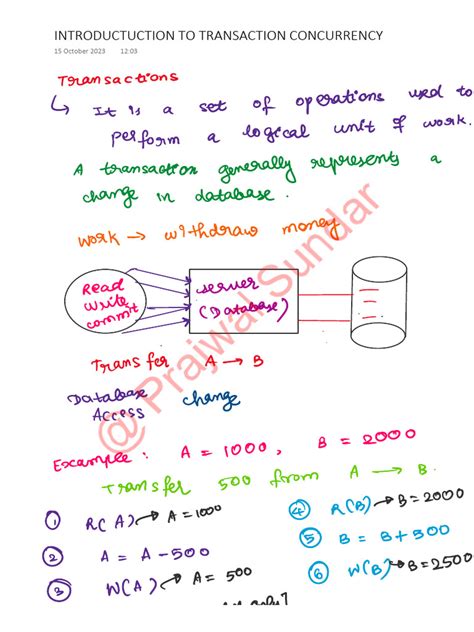 INTRODUCTUCTION TO TRANSACTION CONCURRENCY
15 October 2023 12:03
Transactions
↳ It is a set of operations used to
perform a logical unit of work.
A transaction generally represents a
change in database.
work → withdraw money
Read
Write
commit
server
(Database)
Transfer A → B
Database
Access change
Example : A = 1000, B = 2000
Transfer 500 from A → B.
① R(A) → A = 1000
② A = A - 500
③ W(A) → A = 500
④ R(B) → B = 2000
⑤ B = B + 500
⑥ W(B) → B = 2500
@ Prajwal Sundar